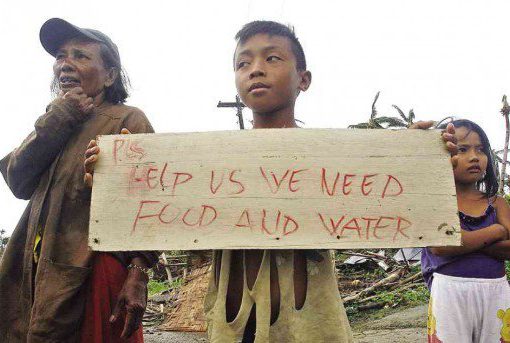 PLS
HELP US WE NEED
FOOD AND WATER